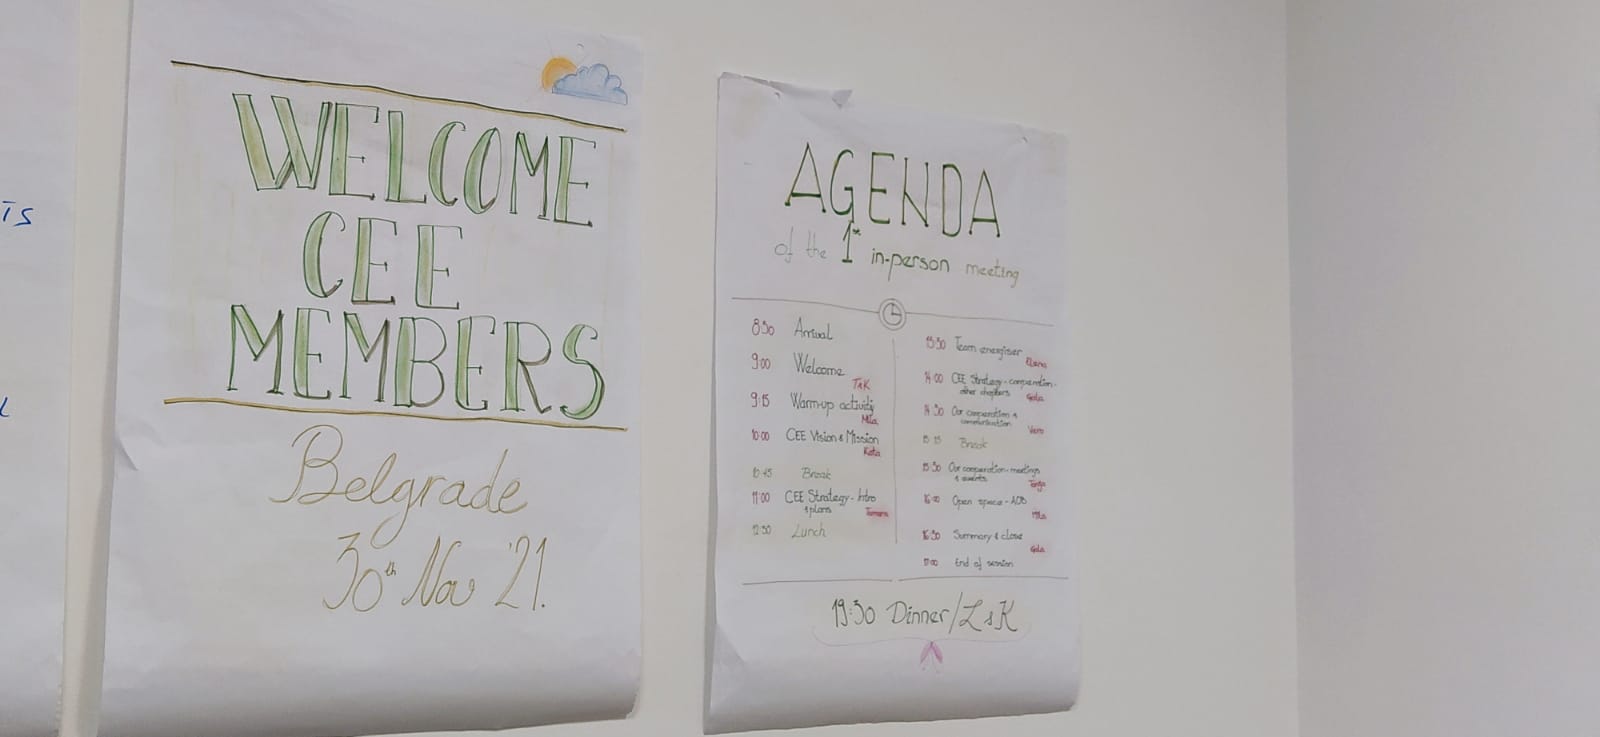 TS
WELCOME
CEE
MEMBERS
Belgrade
30th Nov '21.
AGENDA
of the 1st in-person meeting
8:30 Arrival
9:00 Welcome
T&K
9:15 Warm-up activity
Mila
10:00 CEE Vision & Mission
Kata
10:45 Break
11:00 CEE Strategy - Intro
& plans Tamara
12:30 Lunch
13:30 Team energiser
14:00 CEE Strategy - cooperation -
other chapters
Goda
14:30 Our cooperation &
communication
Vero
15:15 Break
15:30 Our cooperation - meetings
& events
Tanja
16:00 Open space - AOB
Mila
16:30 Summary & close
Goda
17:00 End of session
19:30 Dinner/L&K